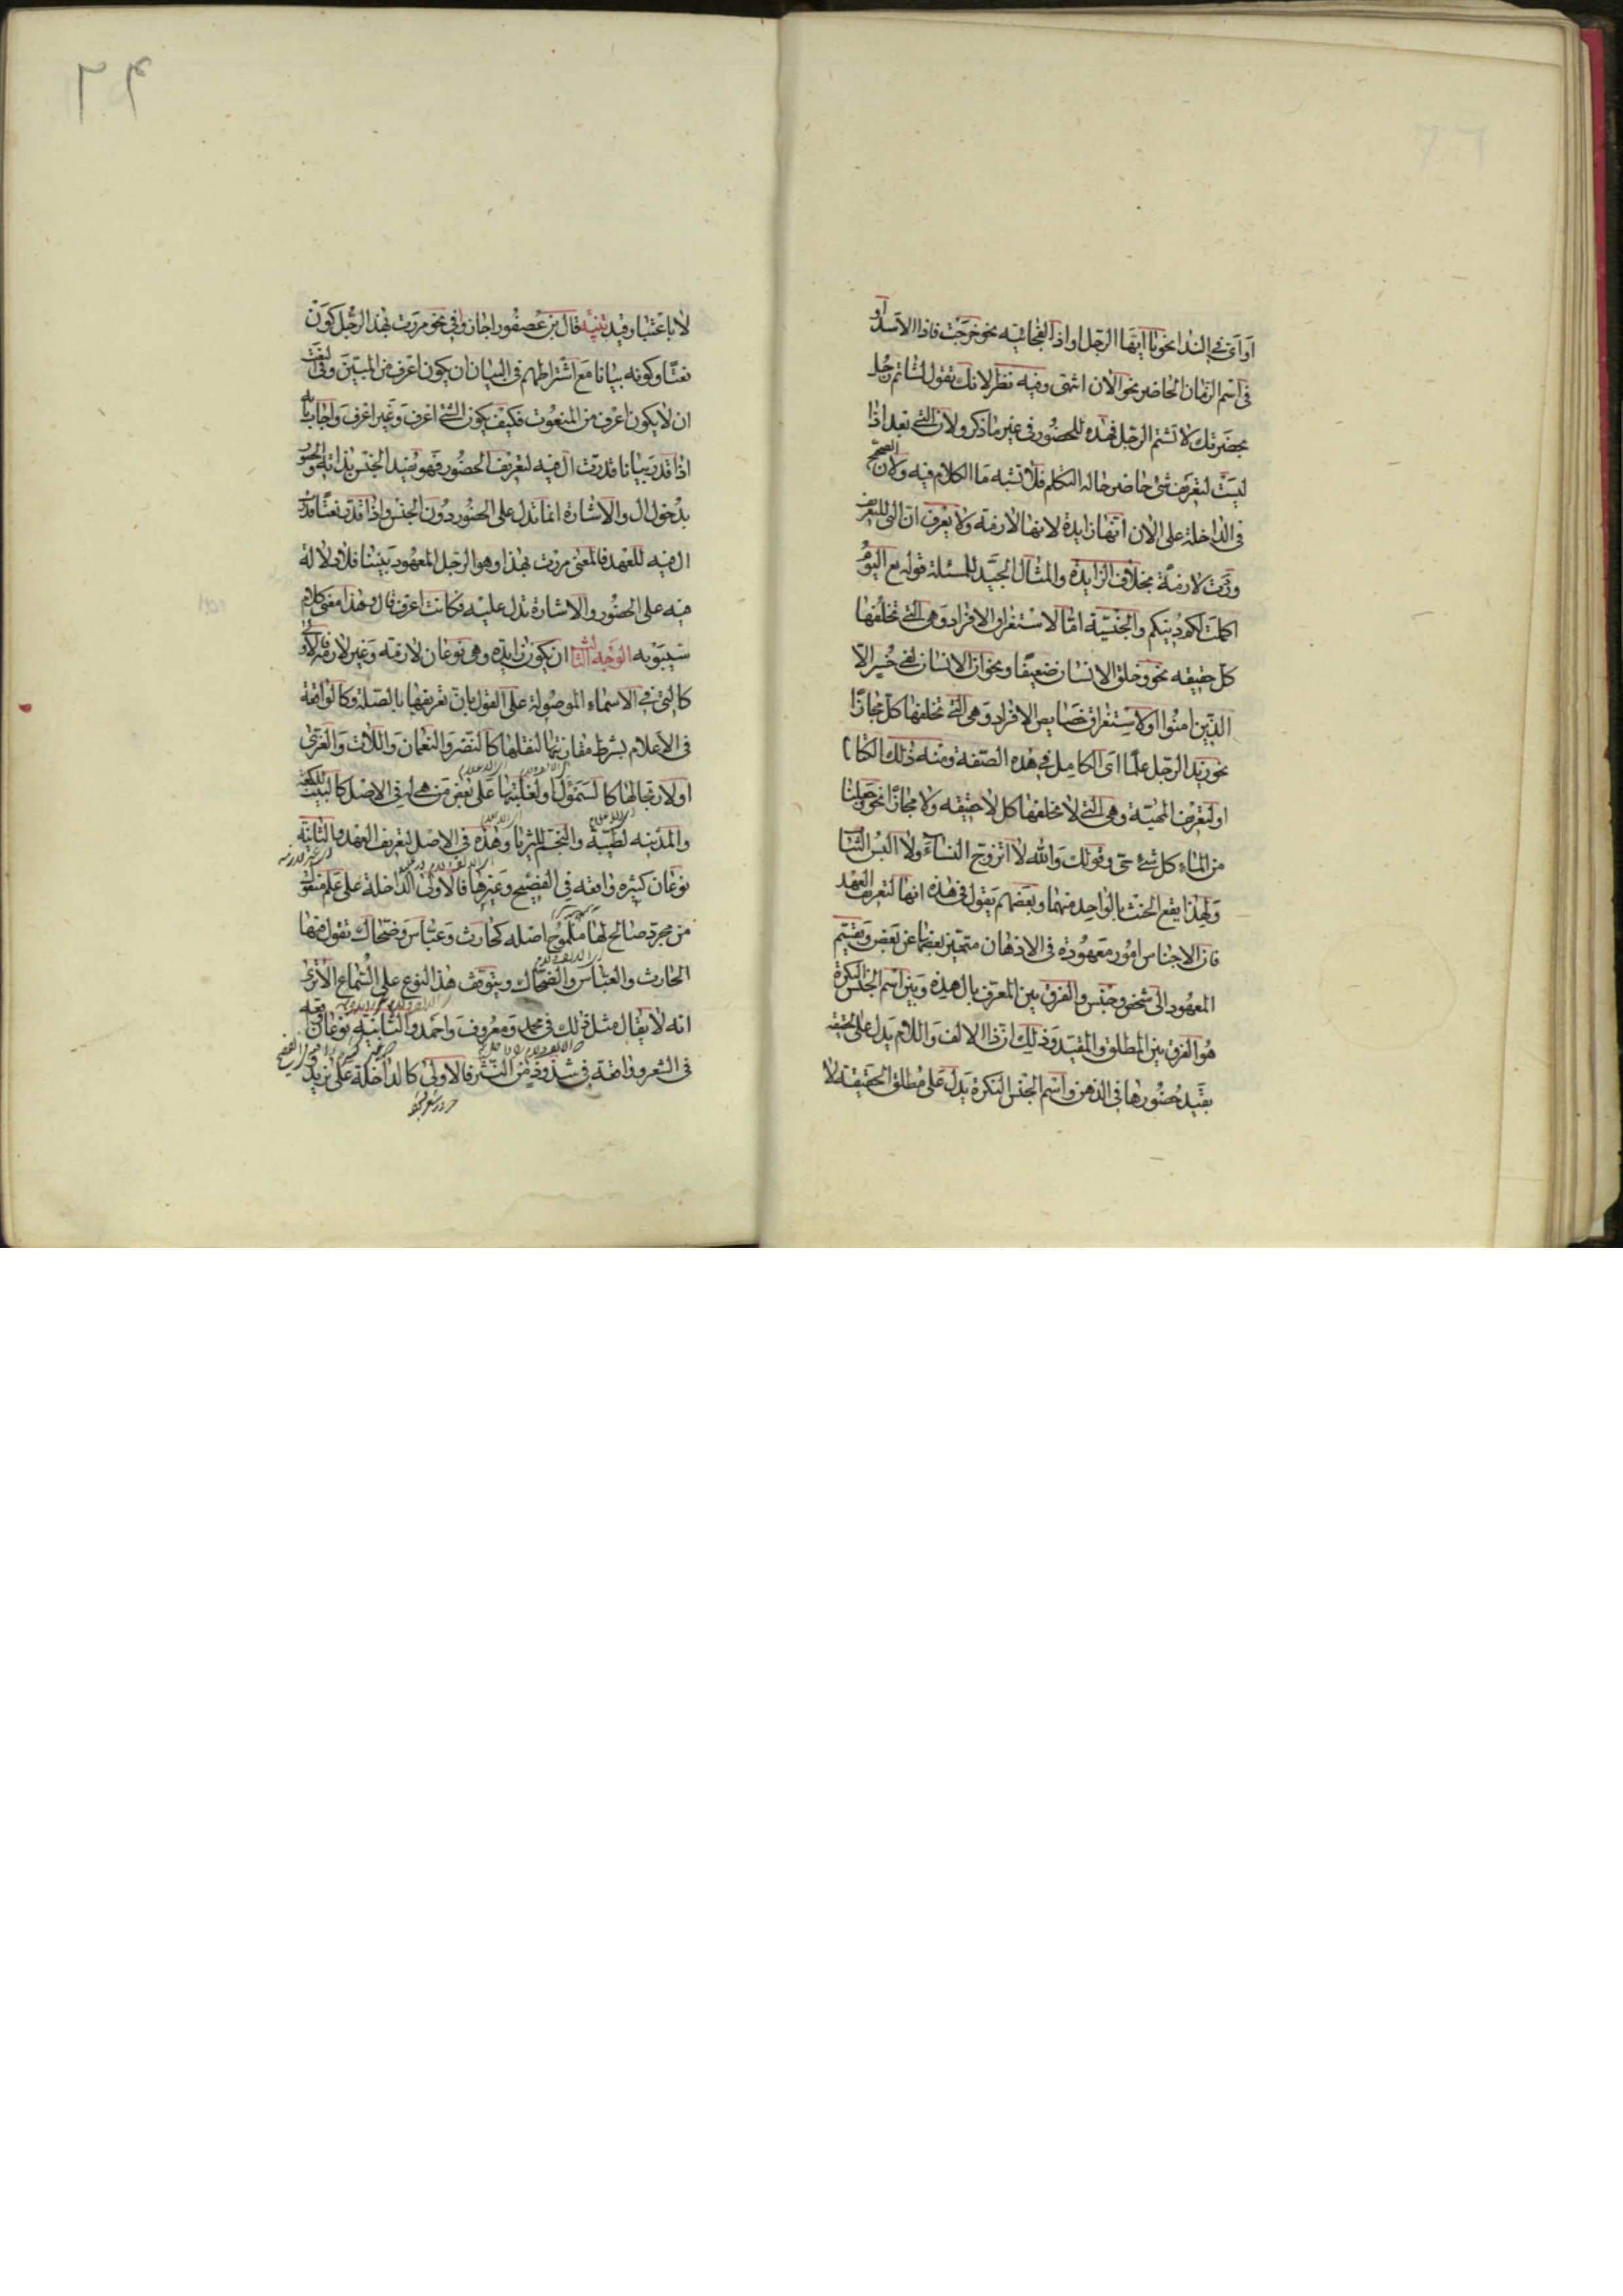 او اى فى الندا نحو يا ايها الرجل او اذا الفجائيه نحو خرجت فاذا الاسد او
فى اسم الزمان الحاضر نحو الان انتهى وفيه نظر لانك تقول لشاتم رجل
بحضرتك لا تشتم الرجل فهذه للحضور فى غير ما ذكر ولان التى بعد اذا
ليست لتعريف شئ حاضر حاله التكلم فلا تشبه ما الكلام فيه ولان الصحيح
فى الداخلة على الان انها زايدة لانها لازمة ولا يعرف ان التى للتعريف
وردت لازمة بخلاف الزايدة والمثال الجيد للمسئلة قوله تع اليوم
اكملت لكم دينكم والجنسية اما لاستغراق الافراد وهى التى تخلفها
كل حقيقه نحو وخلق الانسان ضعيفا ونحو ان الانسان لفى خسر الا
الذين امنوا او لاستغراق خصايص الافراد وهى التى تخلفها كل مجازا
نحو زيد الرجل علما اى الكامل فى هذه الصفة ومنه ذلك الكتاب
او لتعريف المهية وهى التى لا تخلفها كل لا حقيقه ولا مجازا نحو وجعلنا
من الماء كل شئ حى وقولك والله لا اتزوج النساء ولا البس الثيا
ولهذا يقع الحنث بالواحد منهما وبعضهم يقول فى هذه انها لتعريف العهد
فان الاجناس امور معهودة فى الاذهان متميز بعضها عن بعض ويقسم
المعهود الى شخص وجنس والفرق بين المعرف بال هذه وبين اسم الجنس النكرة
هو الفرق بين المطلق والمقيد وذلك ان ذا الالف واللام يدل على الحقيقه
بقيد حضورها فى الذهن واسم الجنس النكرة يدل على مطلق الحقيقة لا
٢٦
لا باعتبار قيد تنبيه قال بن عصفور اجازوا فى نحو مررت بهذا الرجل كون
نعتا وكونه بيانا مع اشتراطهم فى البيان ان يكون اعرف من المبين وفى النعت
ان لا يكون اعرف من المنعوت فكيف يكون الشئ اعرف وغير اعرف واجاب بانه
اذا قدر بيانا قدرت ال فيه لتعريف الحضور فهو يفيد الجنس بذاته والحضور
بدخول ال والاشارة انما تدل على الحضور دون الجنس واذا قدر نعتا قدرت
ال فيه للعهد فالمعنى مررت بهذا وهو الرجل المعهود بيننا فلا دلالة
فيه على الحضور والاشارة تدل عليه فكانت اعرف قال وهذا معنى كلام
سيبويه الوجه الثالث ان يكون زايدة وهى نوعان لازمة وغير لازمة فالاولى
كالتى فى الاسماء الموصولة على القول بان تعريفها بالصلة وكالواقعة
فى الاعلام بشرط مقارنتها لنقلها كالنضر والنعمان واللات والعزى
او لارتجالها كالسموال او لغلبتها على بعض من هى له فى الاصل كالبيت للكعبة
والمدينه لطيبة والنجم للثريا وهذه فى الاصل لتعريف العهد والثانية
نوعان كثيره واقعه فى الفصيح وغيرها فالاولى الداخلة على علم منقول
من مجرد صالح لها ملموح اصله كحارث وعباس وضحاك تقول فيها
الحارث والعباس والضحاك ويتوقف هذا النوع على السماع الا ترى
انه لا يقال مثل ذلك فى محمد ومعروف واحمد والثانية نوعان واقعه
فى الشعر وواقعة فى شذوذ من النثر فالاولى كالداخلة على يزيد